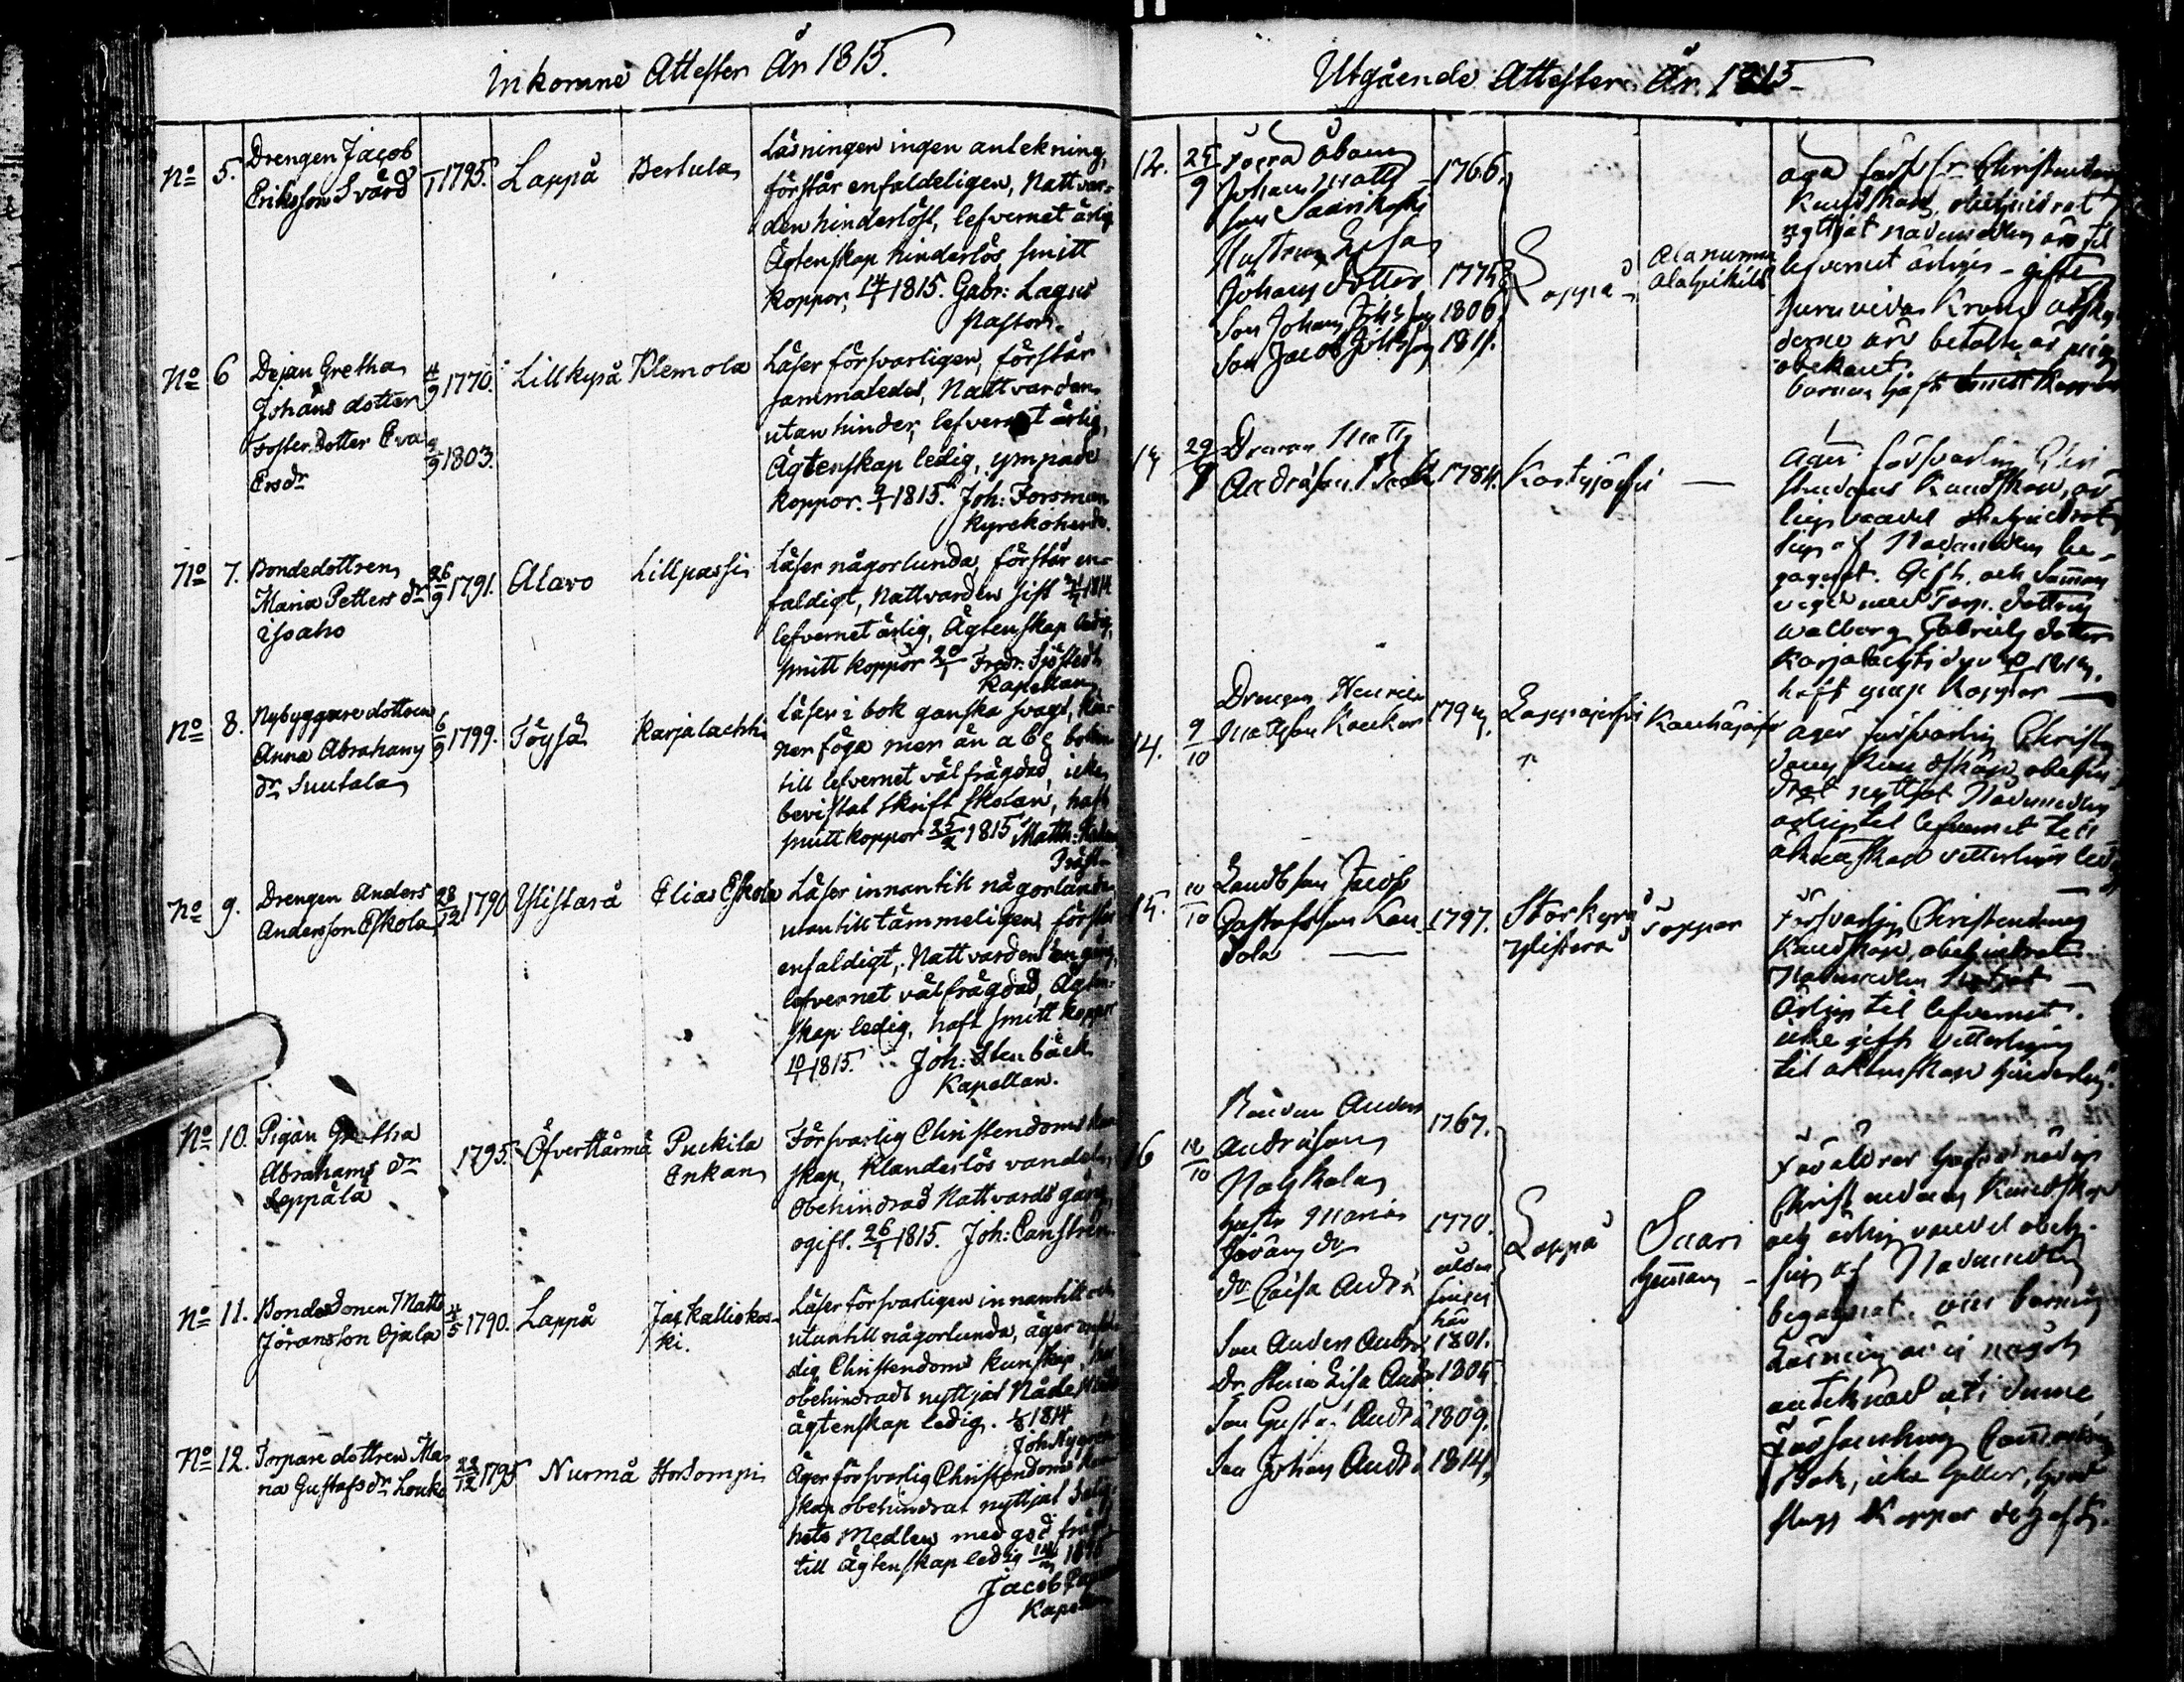 Inkomne Attester År 1815.
No 5. Drengen Jacob
Eriksson Svärd
1795. Lappå Pertula
Läsningen ingen antekning,
förstår enfaldeligen, Nattvar-
den hinderlöst, lefvernet ärlig
Ägtenskap hinderlös, smitt
koppor, 14/1 1815. Gabr: Lagus
Pastor.
No 6 Dejan Gretha
Johans dotter
Foster Dotter Eva
Ersdr
4/9 1770.
9/9 1803.
Lillkyrå Klemola
Läser försvarligen, förstår
sammaledes, Nattvarden
utan hinder, lefvernet ärlig,
Ägtenskap ledig, ympade
koppor. 9/1 1815. Joh: Forsman
Kyrckoherde.
No 7. Bondedottren
Maria Petters dr
Isoaho
26/9 1791. Alavo Lillpassi
Läser någorlunda, förstår en-
faldigt, Nattvarden sist 1814
lefvernet ärlig, Ägtenskap ledig,
smitt koppor 20/1 Fredr: Sjöstedt
Kapellan
No 8. Nybyggare dottren
Anna Abrahams
dr Suutala
6/9 1799. Töysä Karjalachti
Läser i bok ganska svagt, kän-
ner föga mer än a b c boken
till lefvernet välfrägdad, icke
bevistat skrift skolan, haft
smitt koppor 25/2 1815 Matth:
Präst
No 9. Drengen Anders
Andersson Eskola
28/12 1790 Ylistarå Elias Eskola
Läser innantill någorlunda
utantill tämmeligen, förstår
enfaldigt, Nattvarden en gång,
lefvernet välfrägdad, Ägten-
skap ledig, haft smitt koppor
10/1 1815. Joh: Stenbäck
Kapellan.
No 10. Pigan Gretha
Abrahams dr
Seppälä
1795. Öfverttärmä Puckila
Enkan
Försvarlig Christendoms kun
skap, Klanderlös vandel,
obehindrad Nattvards gång,
ogift. 26/1 1815. Joh: Canstren
No 11. Bondesonen Matts
Jöransson Ojala
4/5 1790. Lappå Jac Kalliokos-
ki.
Läser försvarligen innantill och
utantill någorlunda, äger enfal
dig Christendoms kunskap,
obehindradt nyttjat Nåde
ägtenskap ledig. 1814
Joh Nygren
No 12. Torpare dottren Ma
na Gustafs dr Louko
22/12 1795 Nurmå Hordompi
Äger försvarlig Christendoms kun
skap obehindrat nyttjat Salig-
hets Medlen med god frägd
till ägtenskap ledig
Jacob
Kapellan
Utgående Attester År 1815
12. 25/9
Johan Matts
son Saarikoski
Hustrun Lisa
Johans dotter
Son Johan Johsson
Son Jacob Johsson
1766.
1775
1806
1811.
Lappå
Alanurmo
äga Christendoms
Kundskap, obehindrat
nyttjat nådemedlen äro til
lefvernet ärliga - gifte
huruvida Krono utsky-
derne äro betalte är mig
obekant.
barnen haft Koppor
29/9
Drengen Matts
Andersson
1784. Kortesjärfvi
Äger försvarlig Chri-
stendoms Kundskap, är-
lig vandel obehindrat
sig af Nådemedlen be-
gagnat. Gift och Samman
vigd med Torp. Dottren
Walborg Gabriels dotter
Karjalachti
haft ymp Koppor
14. 9/10
Drengen Henric
Mattsson Koukar
Lappajerfvi Kauhajärfvi
äger försvarlig Christen
doms Kundskap, obehin-
drat nyttjat Nådemedlen
ärlig til lefvernet till
äktenskap vetterligen ledig
15. 10/10
Landbson Jacob
Gustafsson Kan
dola
1797. Storkyrå
Ylistaro
Toppar
Försvarlig Christendoms
Kundskap, obehindrat
Nådemedlen nyttjat
ärlig til lefvernet.
icke gift vetterligen
til äktenskap hinderlös.
16 12/10
Bonden Anders
Andersson
hustr Maria
Jörans dr
dr Caisa Andrs
Son Anders Andrs
Dr Maria Lisa Andr
Son Gustaf Andrs
Son Johan Andrs
1767.
1770.
ålder
finnes
här
1801.
1805
1809.
1814.
Lappå
Saari
hemman
Föräldrar hafva nödig
Christendoms Kundskap
och ärlig vandel obeh.
sig af Nådemedlen
begagnat. om barnens
Läsning är ej något
anteknad uti denne
Församlings Comunion
Bok, icke heller, hvad
slags Koppor de haft.